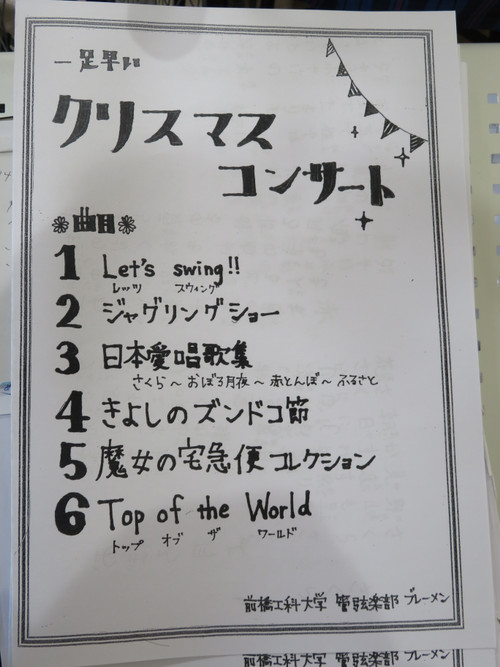 一足早い
クリスマス
コンサート
曲目
1 Let's swing!!
レッツ スウィング
2 ジャグリングショー
3 日本愛唱歌集
さくら～おぼろ月夜～赤とんぼ～ふるさと
4 きよしのズンドコ節
5 魔女の宅急便コレクション
6 Top of the World
トップ オブ ザ ワールド
前橋工科大学 管弦楽部 ブレーメン
前橋工科大学 管弦楽部 ブレーメン